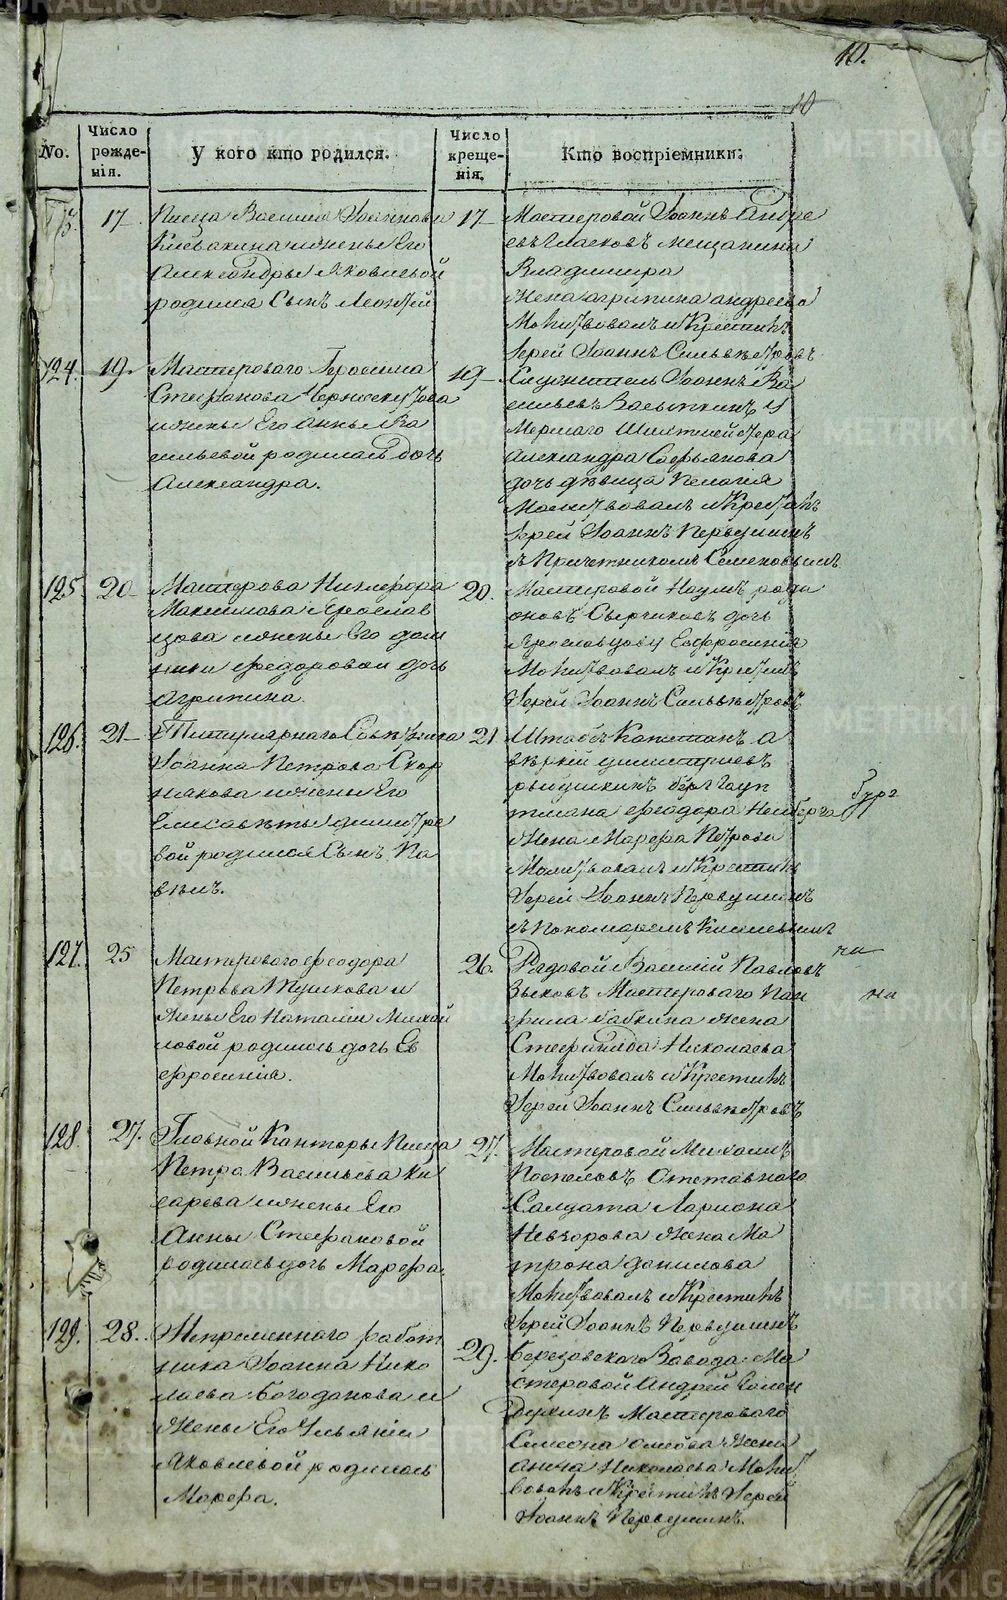 10.
10
No.
Число рожде-нія.
У кого кто родился.
Число креще-нія.
Кто воспріемники.
17
Писца Василья Іоаннова
и жены Его
Александры Яковлевой
родился Сынъ Леонтій
17
Мастеровой Іоаннъ Андре
евъ Власковъ мещанина
Владимира
Жена агрипина андреева
Молитвовалъ и Крестилъ
Іерей Іоаннъ Сильвестровъ
124.
19.
Мастероваго Герасима
Стефанова
и жены Его Анны Ва
сильевой родилась дочь
Александра.
19
Служитель Іоаннъ Ва
сильевъ и
Александра
дочь дѣвица Пелагія
Молитвовалъ и Крестилъ
Іерей Іоаннъ Первушинъ
съ Причетникомъ
125
20
Мастерова Никифора
Максимова Ярослав
цова и жены Его дом
ники федоровой дочь
агрипина.
20.
Мастеровой Наумъ роди
оновъ Сырчиковъ дочь
Ярославцову Евфросинія
Молитвовалъ и Крестилъ
Іерей Іоаннъ Сильвестровъ
126.
21
Титулярнаго Совѣтника
Іоанна Петрова Скор
някова и жены Его
Елисаветы димитрі
вой родился Сынъ Па
велъ.
21
Штабсъ Капитанъ а
димитріевъ
берггауп
тмана феодора
бург
Жена Марфа Петрова
Молитвовалъ и Крестилъ
Іерей Іоаннъ Первушинъ
съ пономаремъ
127.
25
Мастероваго феодора
Петрова Тушкова и
жены Его Наталіи Михай
ловой родилась дочь Ев
фросинія.
26.
Рядовой Василій Павловъ
Зыковъ Мастероваго Пан
фила бабкина жена
Степанида Николаева
Молитвовалъ и Крестилъ
Іерей Іоаннъ Сильвестровъ
на
128
27.
Главной Канторы Писца
Петра Васильева Ки
сарева и жены Его
Анны Стефановой
родилась дочь Марфа.
27.
Мастеровой Михаилъ
Поспеловъ Отставнаго
Салдата Лариона
Невзорова жена Ма
трона данилова
Молитвовалъ и Крестилъ
Іерей Іоаннъ Первушинъ
129.
28.
Непременнаго работ
ника Іоанна Нико
лаева богоданова и
жены Его Ульяніи
Яковлевой родилась
Марфа.
29.
березовскаго Завода Ма
стеровой Андрей Семен
Мастероваго
Симеона жена
анна Николаева Молит
вовалъ и Крестилъ Іерей
Іоаннъ Первушинъ.
METRIKI.GASO-URAL.RU